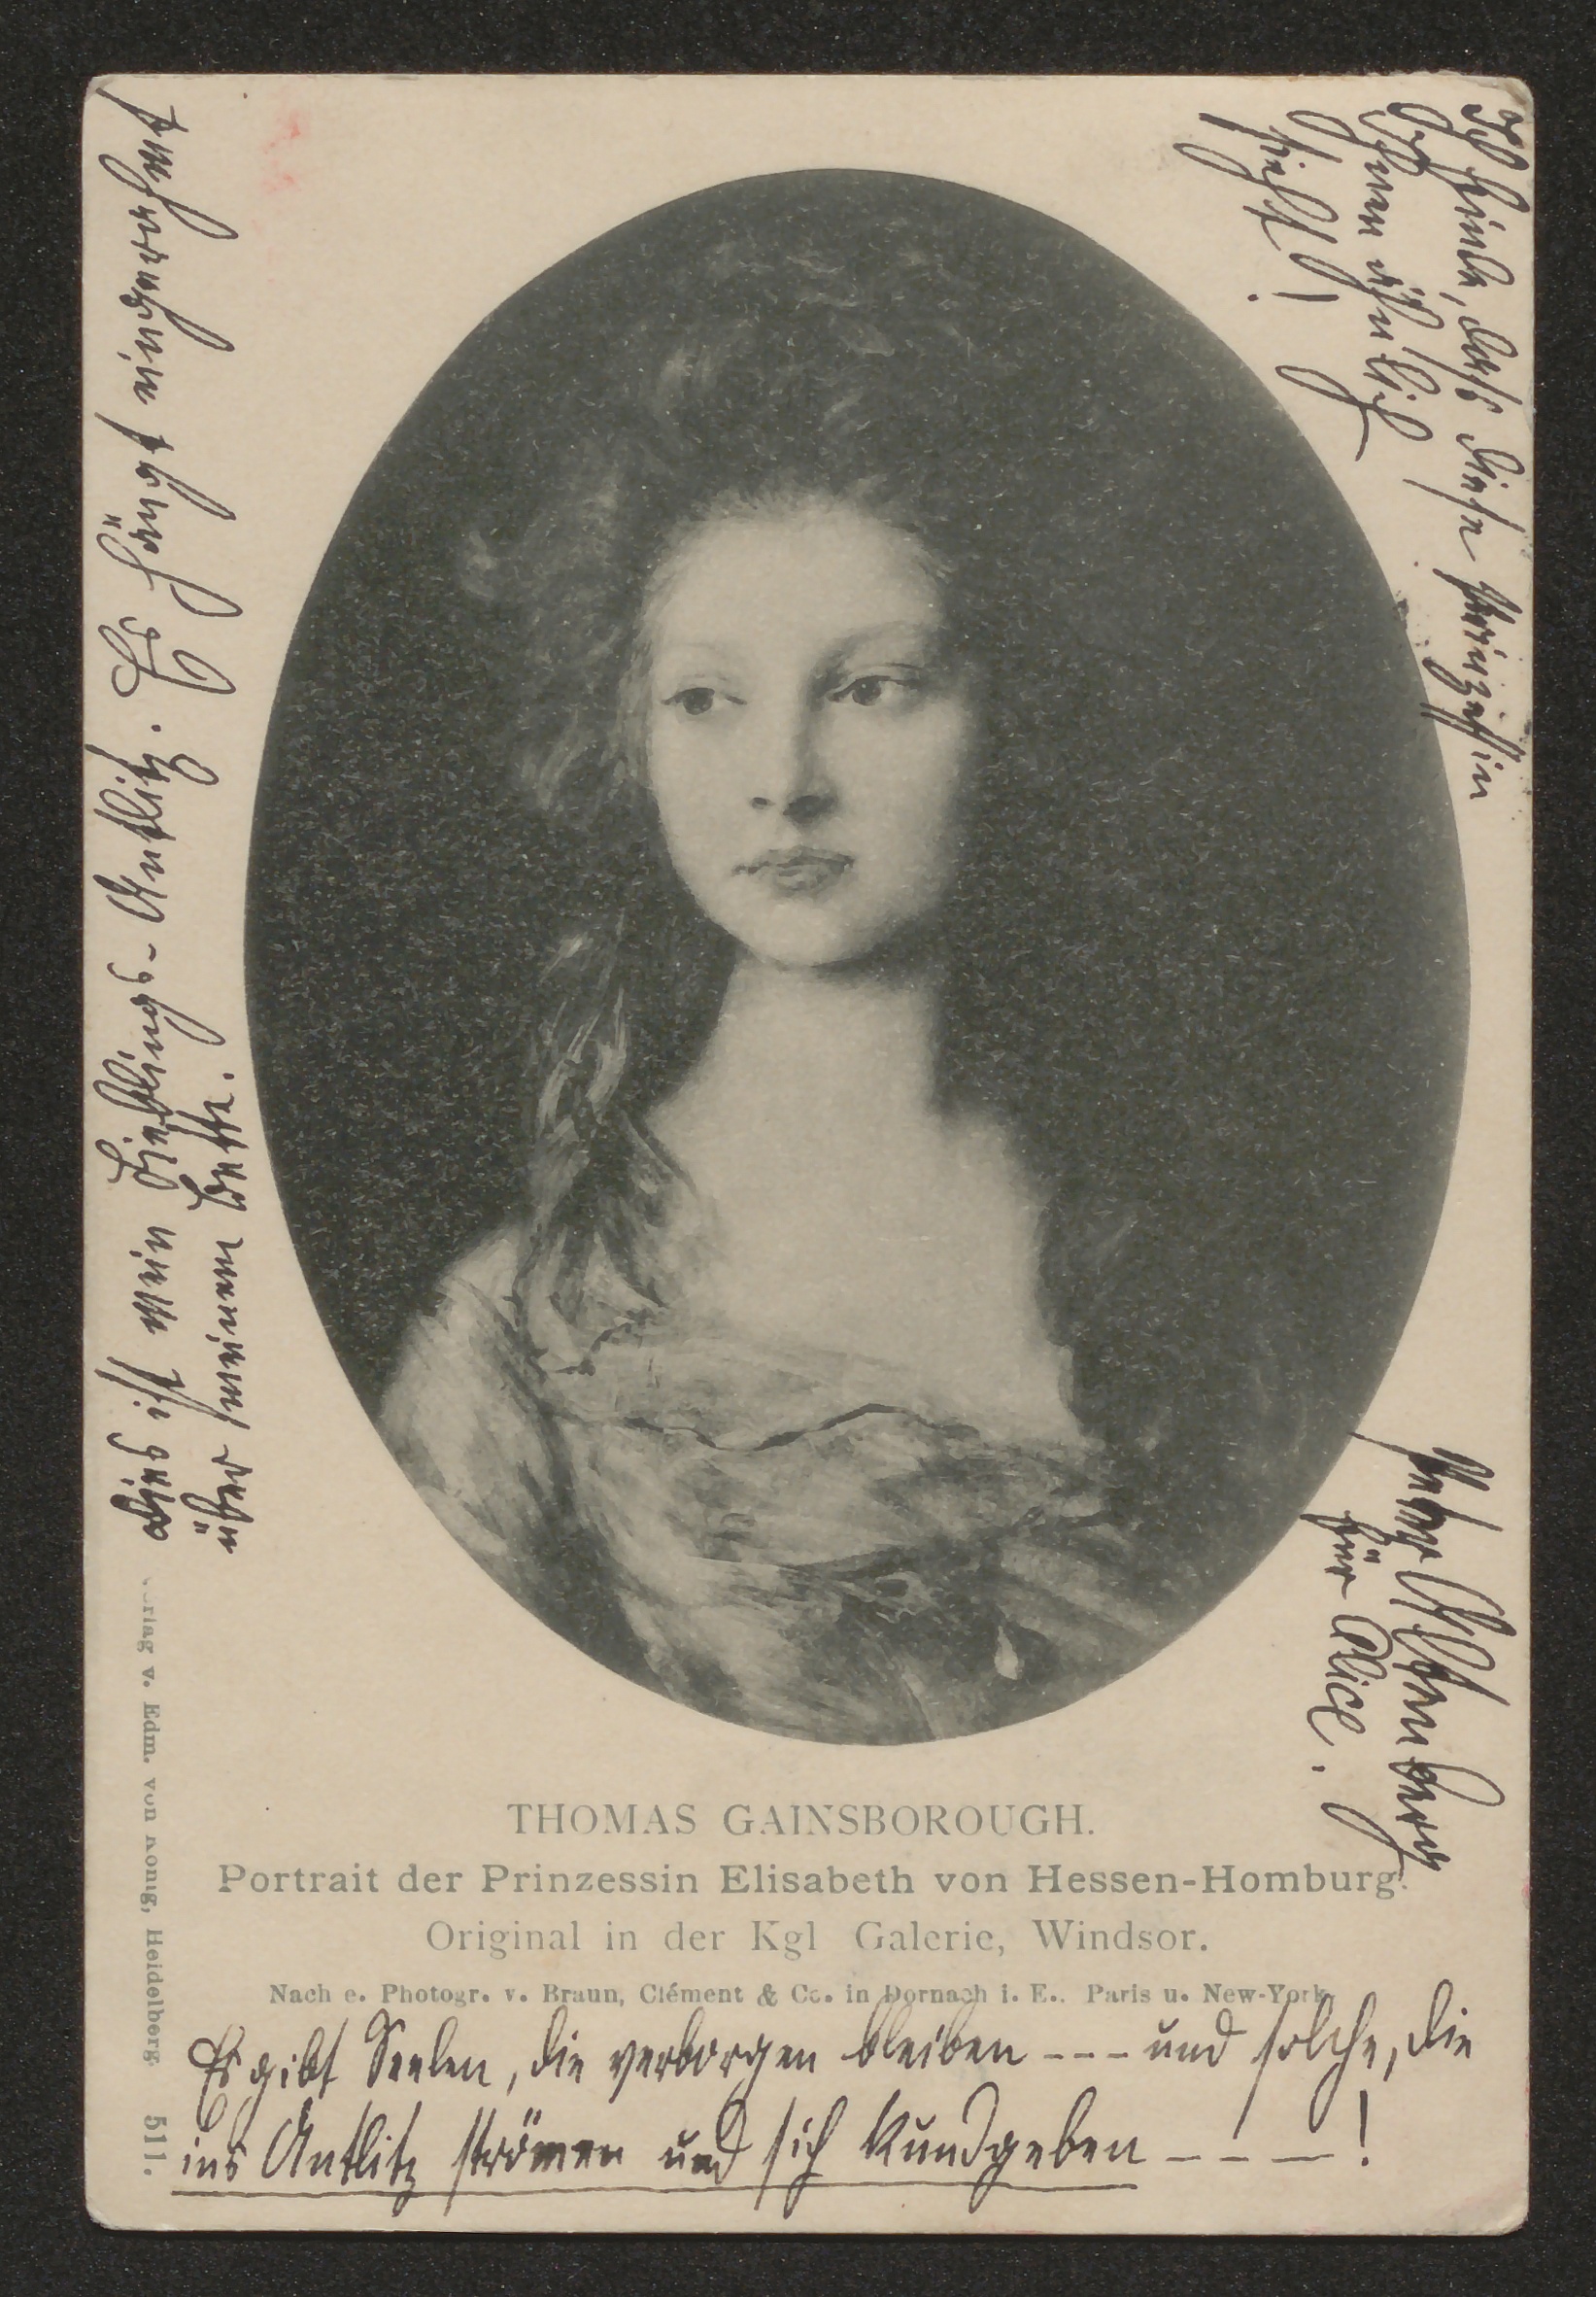 Ich finde, dass diese Prinzessin
Ihnen ähnlich
sieht!
Peter Altenberg
für Alice.
ist mein Lieblings-Antlitz. Es hängt eingerahmt
über meinem Bette.
THOMAS GAINSBOROUGH.
Portrait der Prinzessin Elisabeth von Hessen-Homburg.
Original in der Kgl Galerie, Windsor.
Nach e. Photogr. v. Braun, Clément & Co. in Dornach i. E., Paris u. New-York.
Verlag v. Edm. von König, Heidelberg 511.
Es gibt Seelen, die verborgen bleiben --- und solche, die
ins Antlitz strömen und sich kundgeben ---!